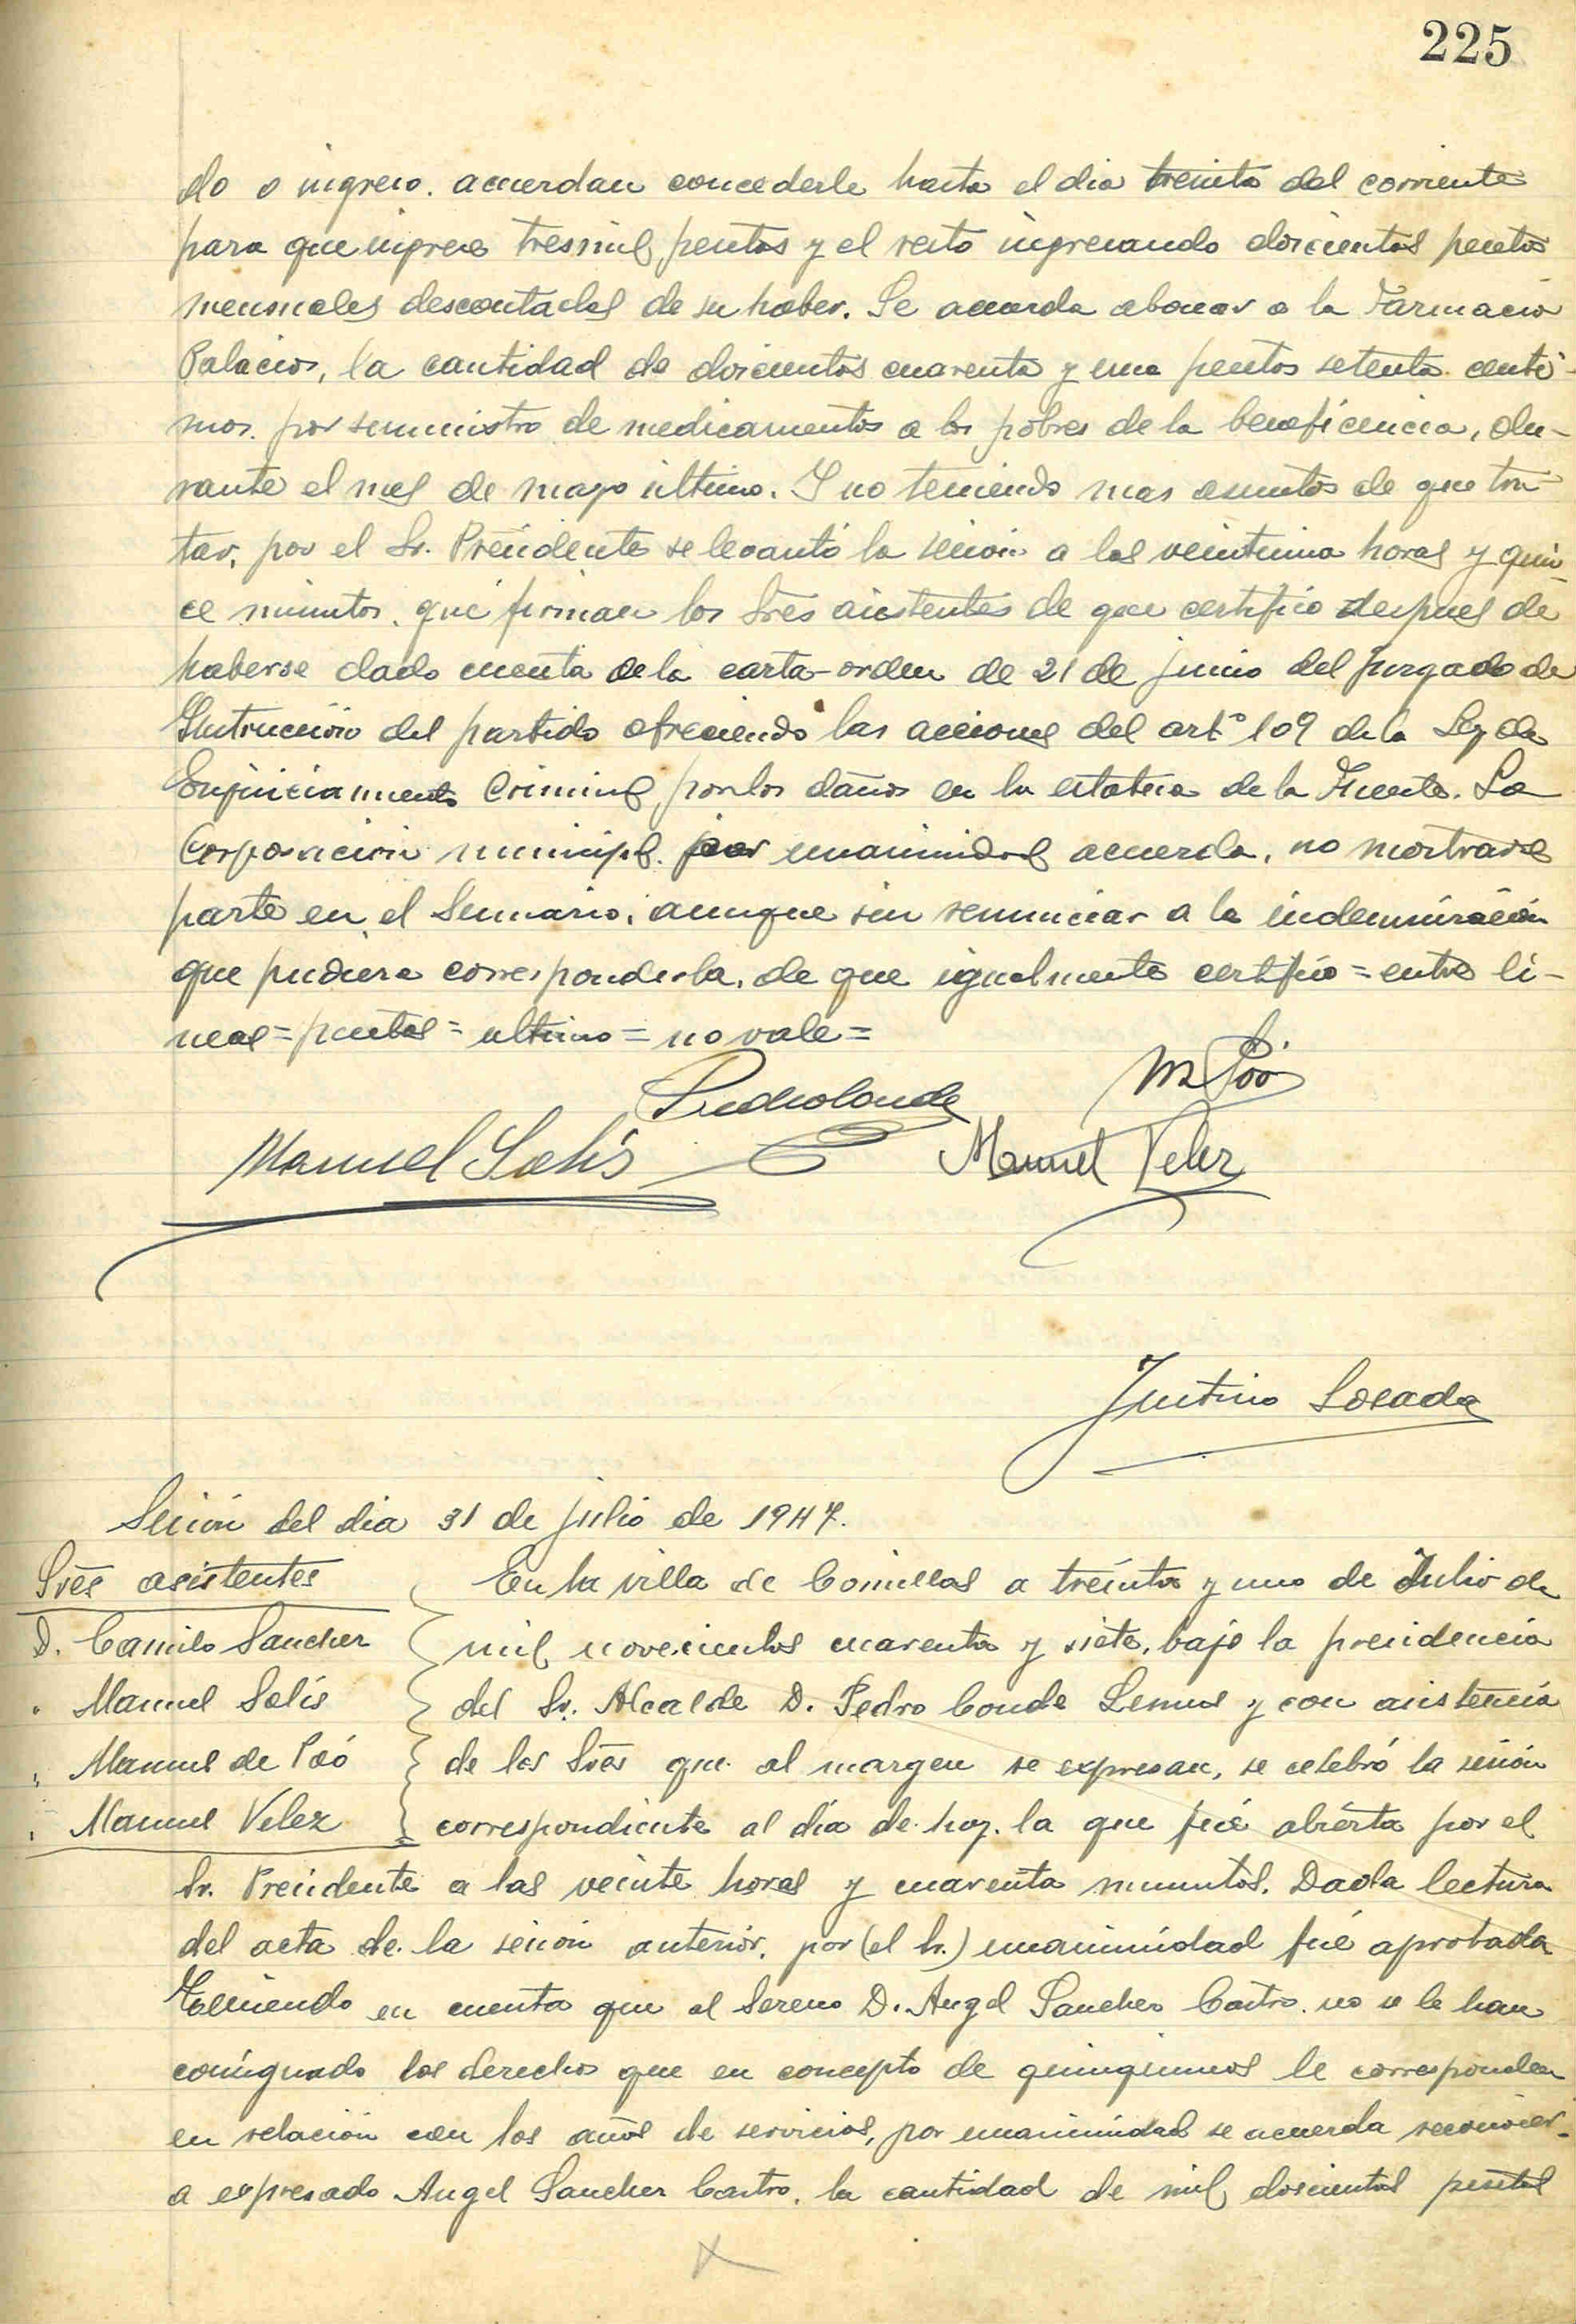 225
do o ingreso. acuerdan concederle hasta el dia treinta del corriente
para que ingrese tresmil pesetas y el resto ingresando doscientas pesetas
mensuales descontadas de su haber. Se acuerda abonar a la Farmacia
Palacios, la cantidad de doscientas cuarenta y una pesetas setenta centi-
mos. por suministro de medicamentos a los pobres de la beneficencia, du-
rante el mes de mayo ultimo. Y no teniendo mas asuntos de que tra-
tar, por el Sr. Presidente se levantó la sesión a las veintiuna horas y quin-
ce minutos. que firman los Sres asistentes de que certifico despues de
haberse dado cuenta de la carta-orden de 21 de junio del juzgado de
Instrucción del partido ofreciendo las acciones del artº 109 de la Ley de
Enjuiciamiento Criminal, por los daños en la estatua de la Fuente. La
Corporación municipal. por unanimidad acuerda, no mostrarse
parte en el Sumario, aunque sin renunciar a la indemnización
que pudiera corresponderla, de que igualmente certifico = entre li-
neas = pesetas = ultimo = no vale =
M Poó
Pedro Conde
Manuel Solís
Manuel Velez
Justino Losada
Sesión del dia 31 de julio de 1947.
Sres asistentes
D. Camilo Sanchez
" Manuel Solís
" Manuel de Poó
" Manuel Velez
En la villa de Comillas a treinta y uno de Julio de
mil novecientos cuarenta y siete, bajo la presidencia
del Sr. Alcalde D. Pedro Conde Lemus y con asistencia
de los Sres que al margen se expresan, se celebró la sesión
correspondiente al día de hoy. la que fué abierta por el
Sr. Presidente a las veinte horas y cuarenta minutos. Dada lectura
del acta de la sesión anterior, por (el Sr.) unanimidad fué aprobada
Teniendo en cuenta que al Sereno D. Angel Sanchez Castro. no se le han
consignado los derechos que en concepto de quinquenios le corresponden
en relación con los años de servicios, por unanimidad se acuerda reconocer-
a expresado Angel Sanchez Castro, la cantidad de mil doscientas pesetas